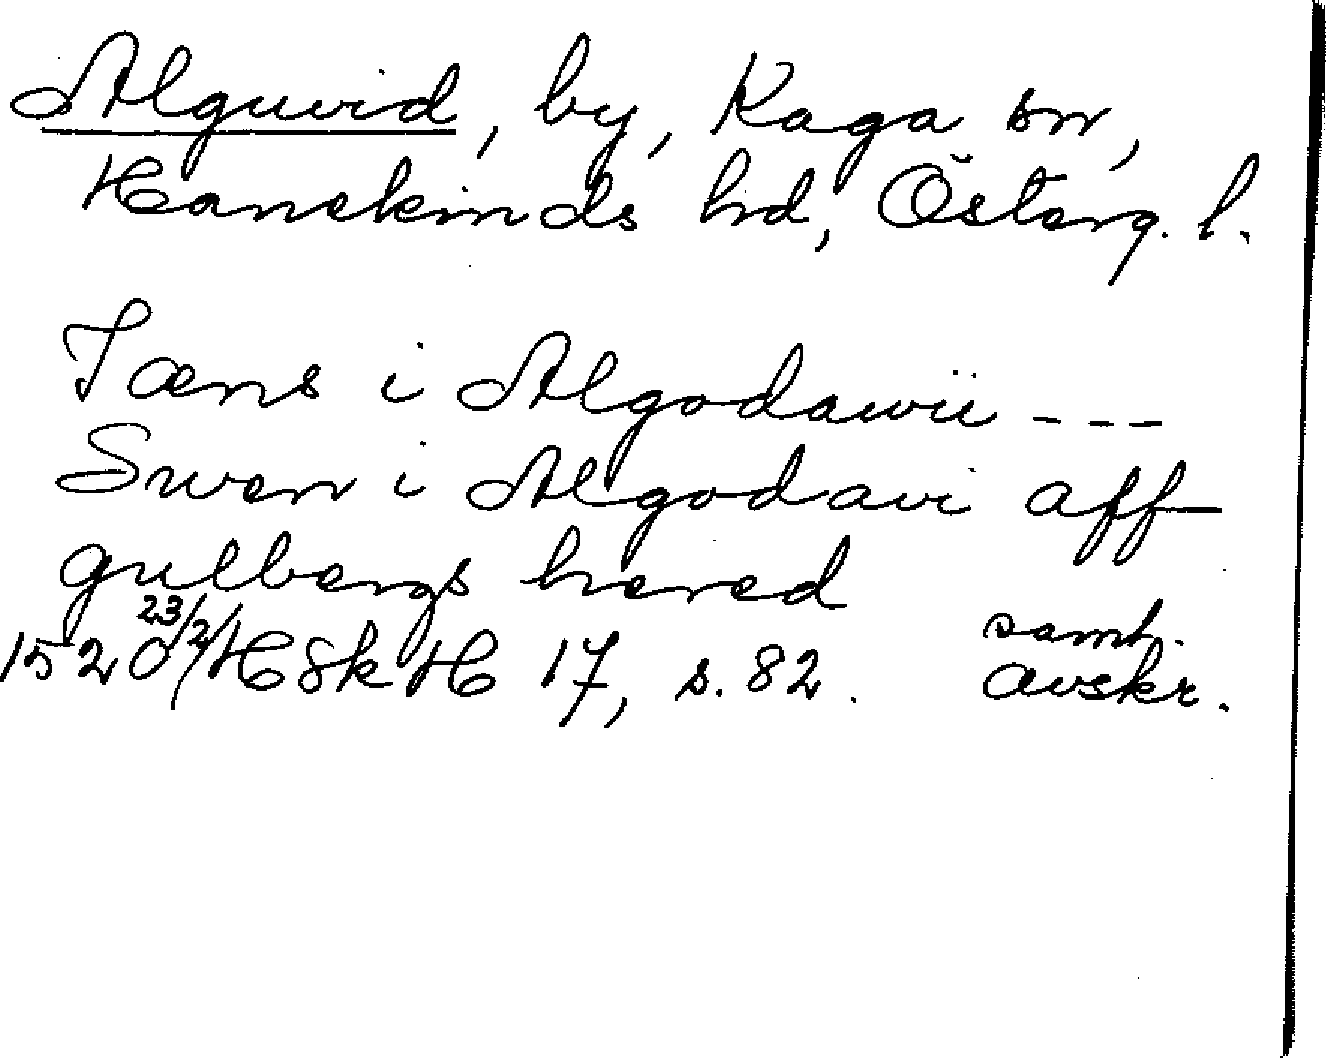 Alguvid, by, Kaga sn,
Hanekinds hd, Österg. l.
Jæns i Algodawii ---
Swen i Algodavi aff
gulbergs hered
1520 23/2 HSkH 17, s. 82. samt.
avskr.